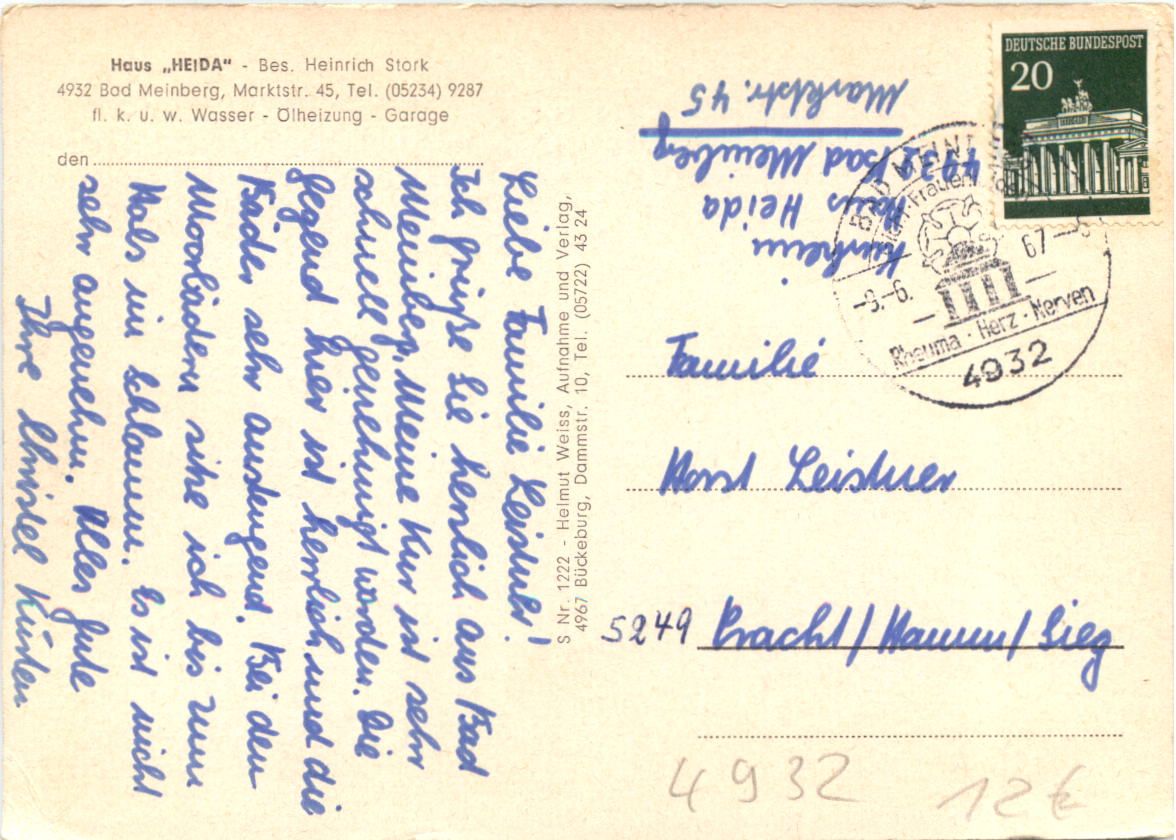 Haus „HEIDA“ - Bes. Heinrich Stork
4932 Bad Meinberg, Marktstr. 45, Tel. (05234) 9287
fl. k. u. w. Wasser - Ölheizung - Garage
den
Liebe Familie Leistner!
Ich grüße Sie herzlich aus Bad
Meinberg. Meine Kur ist sehr
schnell genehmigt worden. Die
Gegend hier ist herrlich und die
Bäder sehr anstrengend. Bei den
Moorbädern sitze ich bis zum
Hals im Schlamm. Es ist nicht
sehr angenehm. Alles Gute
Ihre Christel Küsten
S Nr. 1222 - Helmut Weiss, Aufnahme und Verlag,
4967 Bückeburg, Dammstr. 10, Tel. (05722) 43 24
Kurheim
Haus Heida
4932 Bad Meinberg
Marktstr. 45
DEUTSCHE BUNDESPOST
20
BAD MEINBERG
-9.-6.
67-
Rheuma · Herz · Nerven
4932
Familie
Horst Leistner
5249 Pracht/Hamm/Sieg
4932
12€